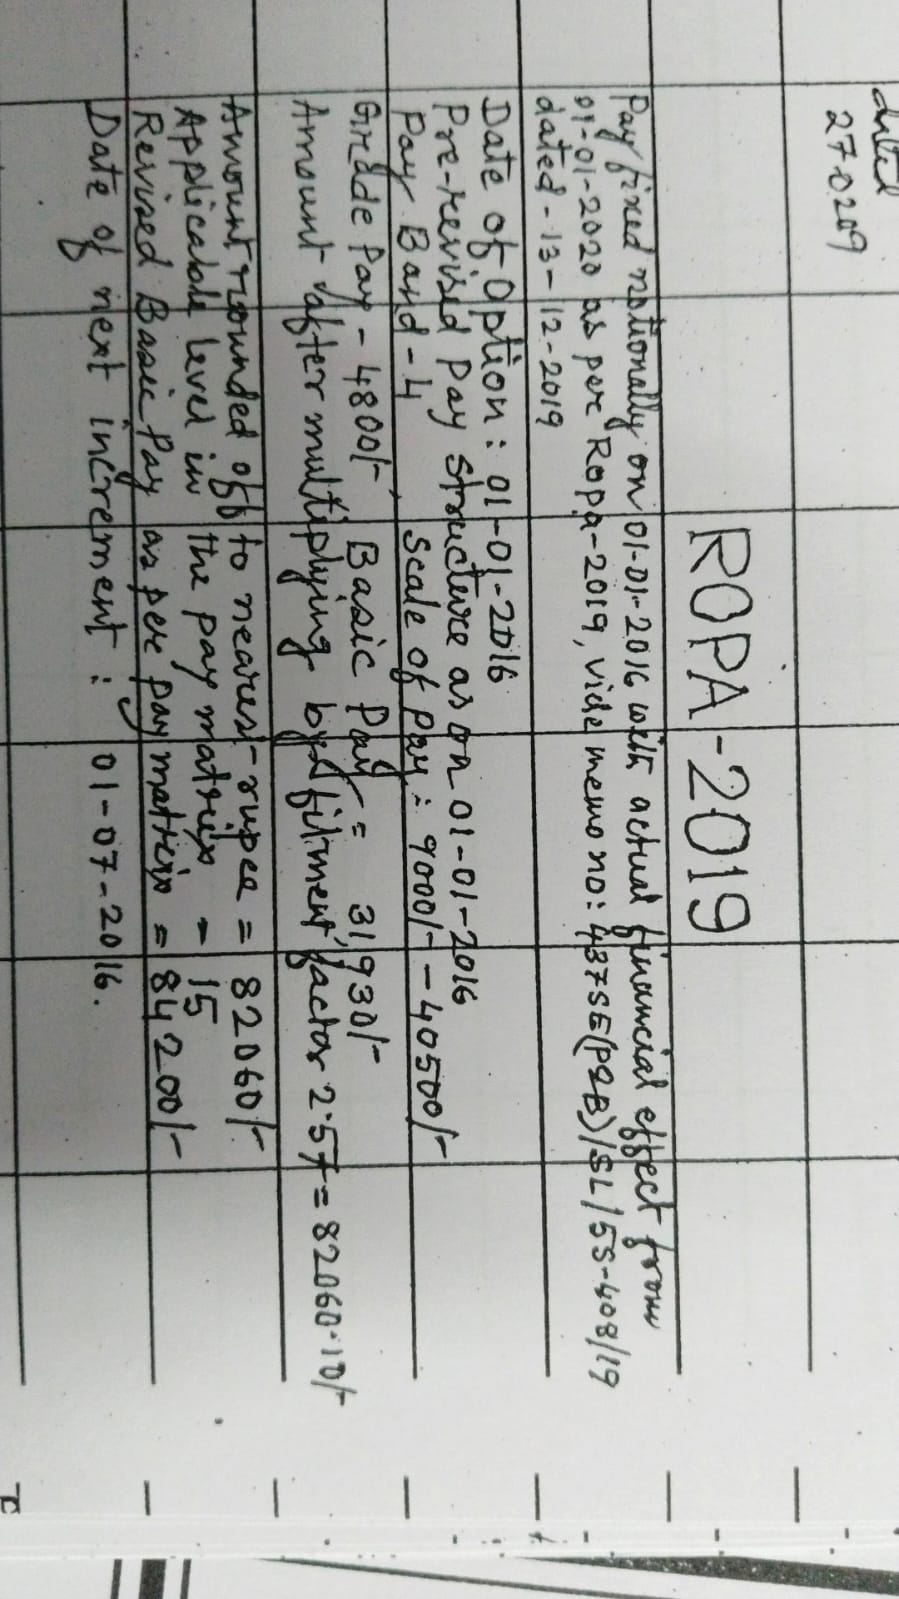 dated
27.02.09
ROPA-2019
Pay fixed notionally on 01-01-2016 with actual financial effect from
01-01-2020 as per Ropa-2019, vide memo no: 437SE(P&B)/SL/5S-408/19
dated-13-12-2019
Date of Option: 01-01-2016
Pre-revised Pay structure as on 01-01-2016
Pay Band-4, Scale of pay: 9000/- - 40500/-
Grade Pay - 4800/- Basic Pay = 31,930/-
Amount after multiplying by fitment factor 2.57 = 82060.10/-
Amount rounded off to nearest rupee = 82060/-
Applicable level in the pay matrix - 15
Revised Basic Pay as per pay matrix = 84200/-
Date of next increment : 01-07-2016.